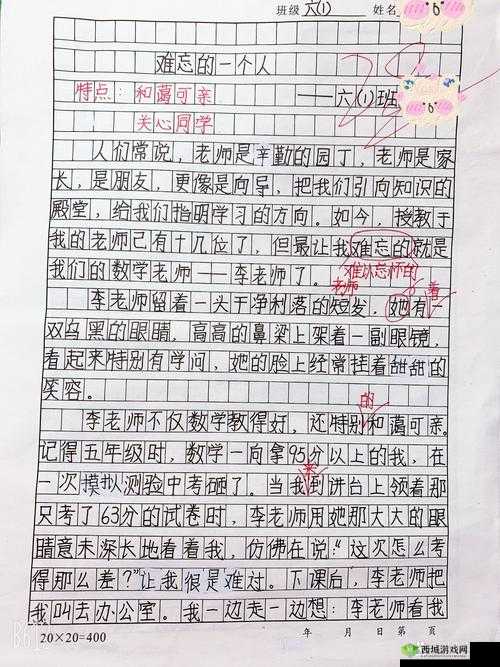 班级 六(1) 姓名
难忘的一个人
特点：和蔼可亲 ——六(1)班
关心同学
人们常说，老师是辛勤的园丁，老师是家
长，是朋友，更像是向导，把我们引向知识的
殿堂，给我们指明学习的方向。如今，授教于
我的老师已有十几位了，但最让我难忘的就是
我们的数学老师——李老师了。 难以忘怀的
老师 着
李老师留着一头干净利落的短发，她有一
双乌黑的眼睛，高高的鼻梁上架着一副眼镜，
看起来特别有学问，她的脸上经常挂着甜甜的
笑容。
的
李老师不仅数学教得好，还特别和蔼可亲。
记得五年级时，数学一向拿95分以上的我，在
一次模拟测验中考砸了。当我到讲台上领着那
只考了63分的试卷时，李老师用她那大大的眼
睛意未深长地看着我，仿佛在说："这次怎么考
得那么差？"让我很是难过。下课后，李老师把
我叫去办公室。我一边走一边想：李老师看我
20×20=400 年 月 日 第 页
西城游戏网